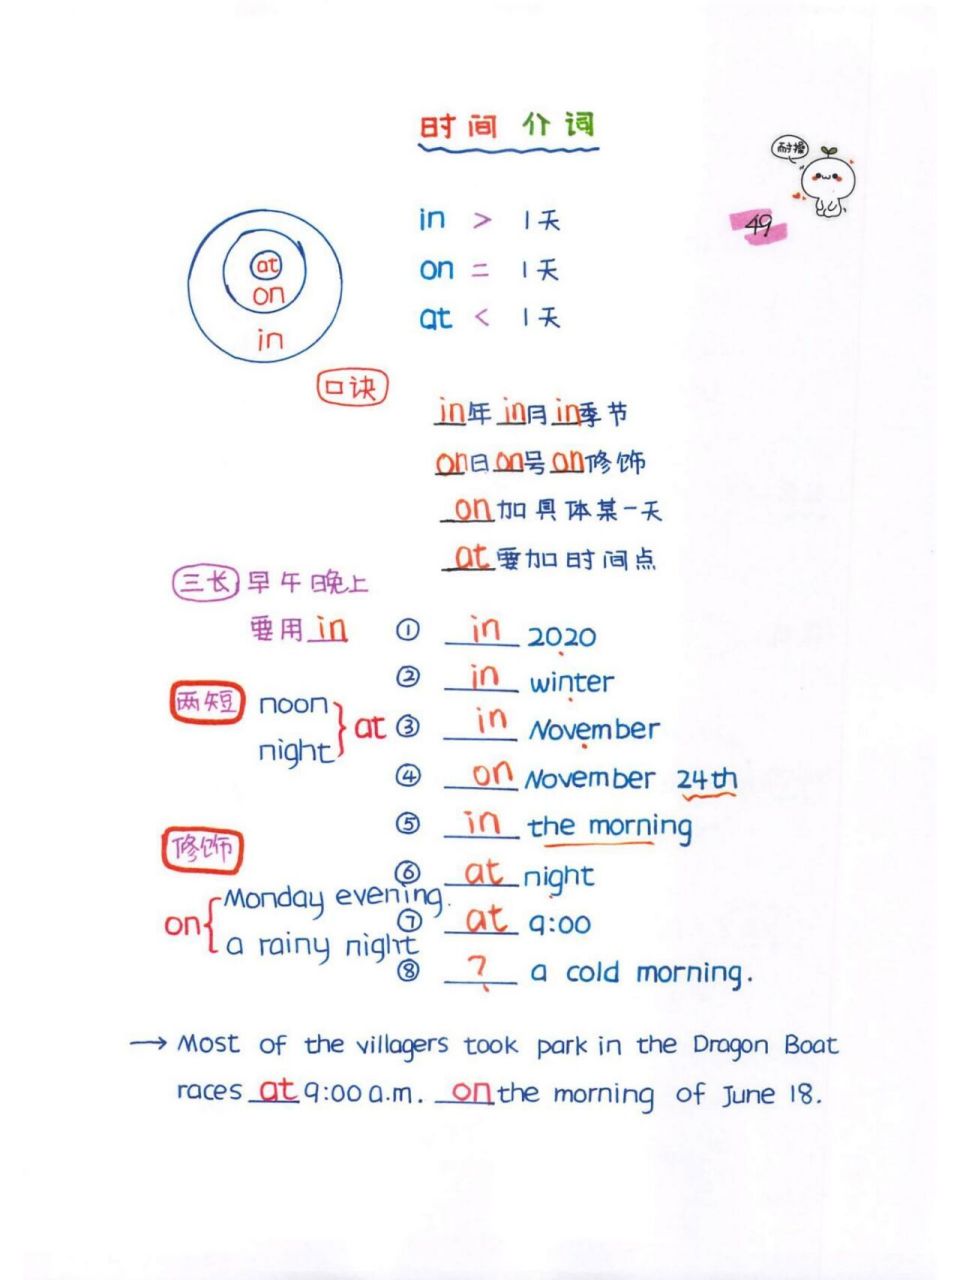 时间 介词
耐撕
49
at
on
in
in > 1天
on = 1天
at < 1天
口诀
in年 in月 in季节
on日 on号 on修饰
on加具体某一天
at要加时间点
三长 早午晚上
要用 in
① in 2020
② in winter
两短 noon
night } at
③ in November
④ on November 24th
⑤ in the morning
修饰
⑥ at night
on { Monday evening.
a rainy night
⑦ at 9:00
⑧ ? a cold morning.
→ Most of the villagers took park in the Dragon Boat
races at 9:00 a.m. on the morning of June 18.